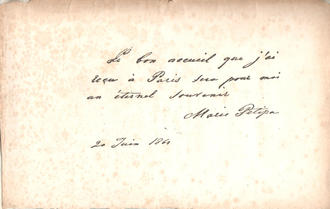 Le bon accueil que j'ai
reçu à Paris sera pour moi
un éternel souvenir
Marie Petipa
20 Juin 186